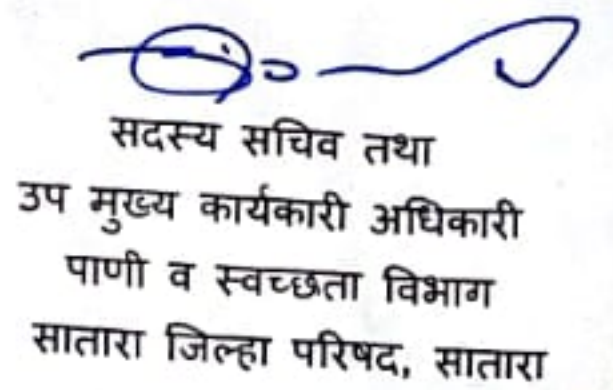 सदस्य सचिव तथा
उप मुख्य कार्यकारी अधिकारी
पाणी व स्वच्छता विभाग
सातारा जिल्हा परिषद, सातारा